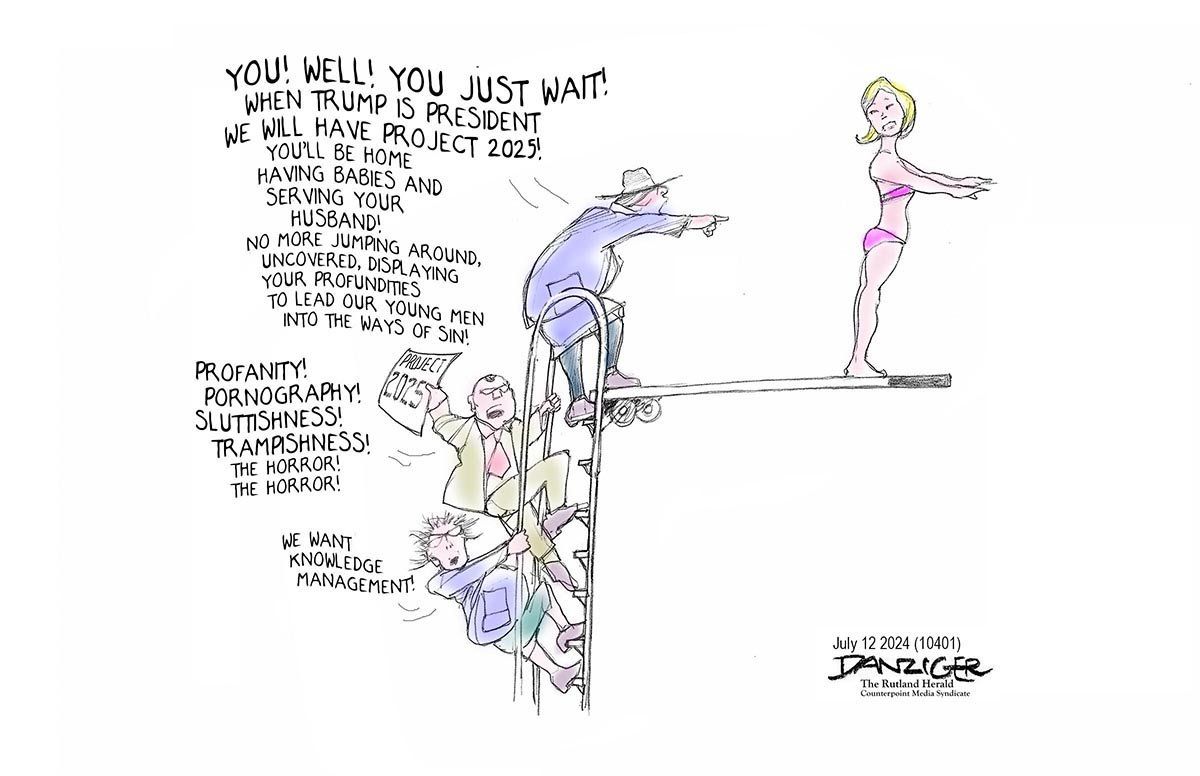 YOU! WELL! YOU JUST WAIT!
WHEN TRUMP IS PRESIDENT
WE WILL HAVE PROJECT 2025!
YOU'LL BE HOME
HAVING BABIES AND
SERVING YOUR
HUSBAND!
NO MORE JUMPING AROUND,
UNCOVERED, DISPLAYING
YOUR PROFUNDITIES
TO LEAD OUR YOUNG MEN
INTO THE WAYS OF SIN!
PROJECT
2025
PROFANITY!
PORNOGRAPHY!
SLUTTISHNESS!
TRAMPISHNESS!
THE HORROR!
THE HORROR!
WE WANT
KNOWLEDGE
MANAGEMENT!
July 12 2024 (10401)
DANZIGER
The Rutland Herald
Counterpoint Media Syndicate